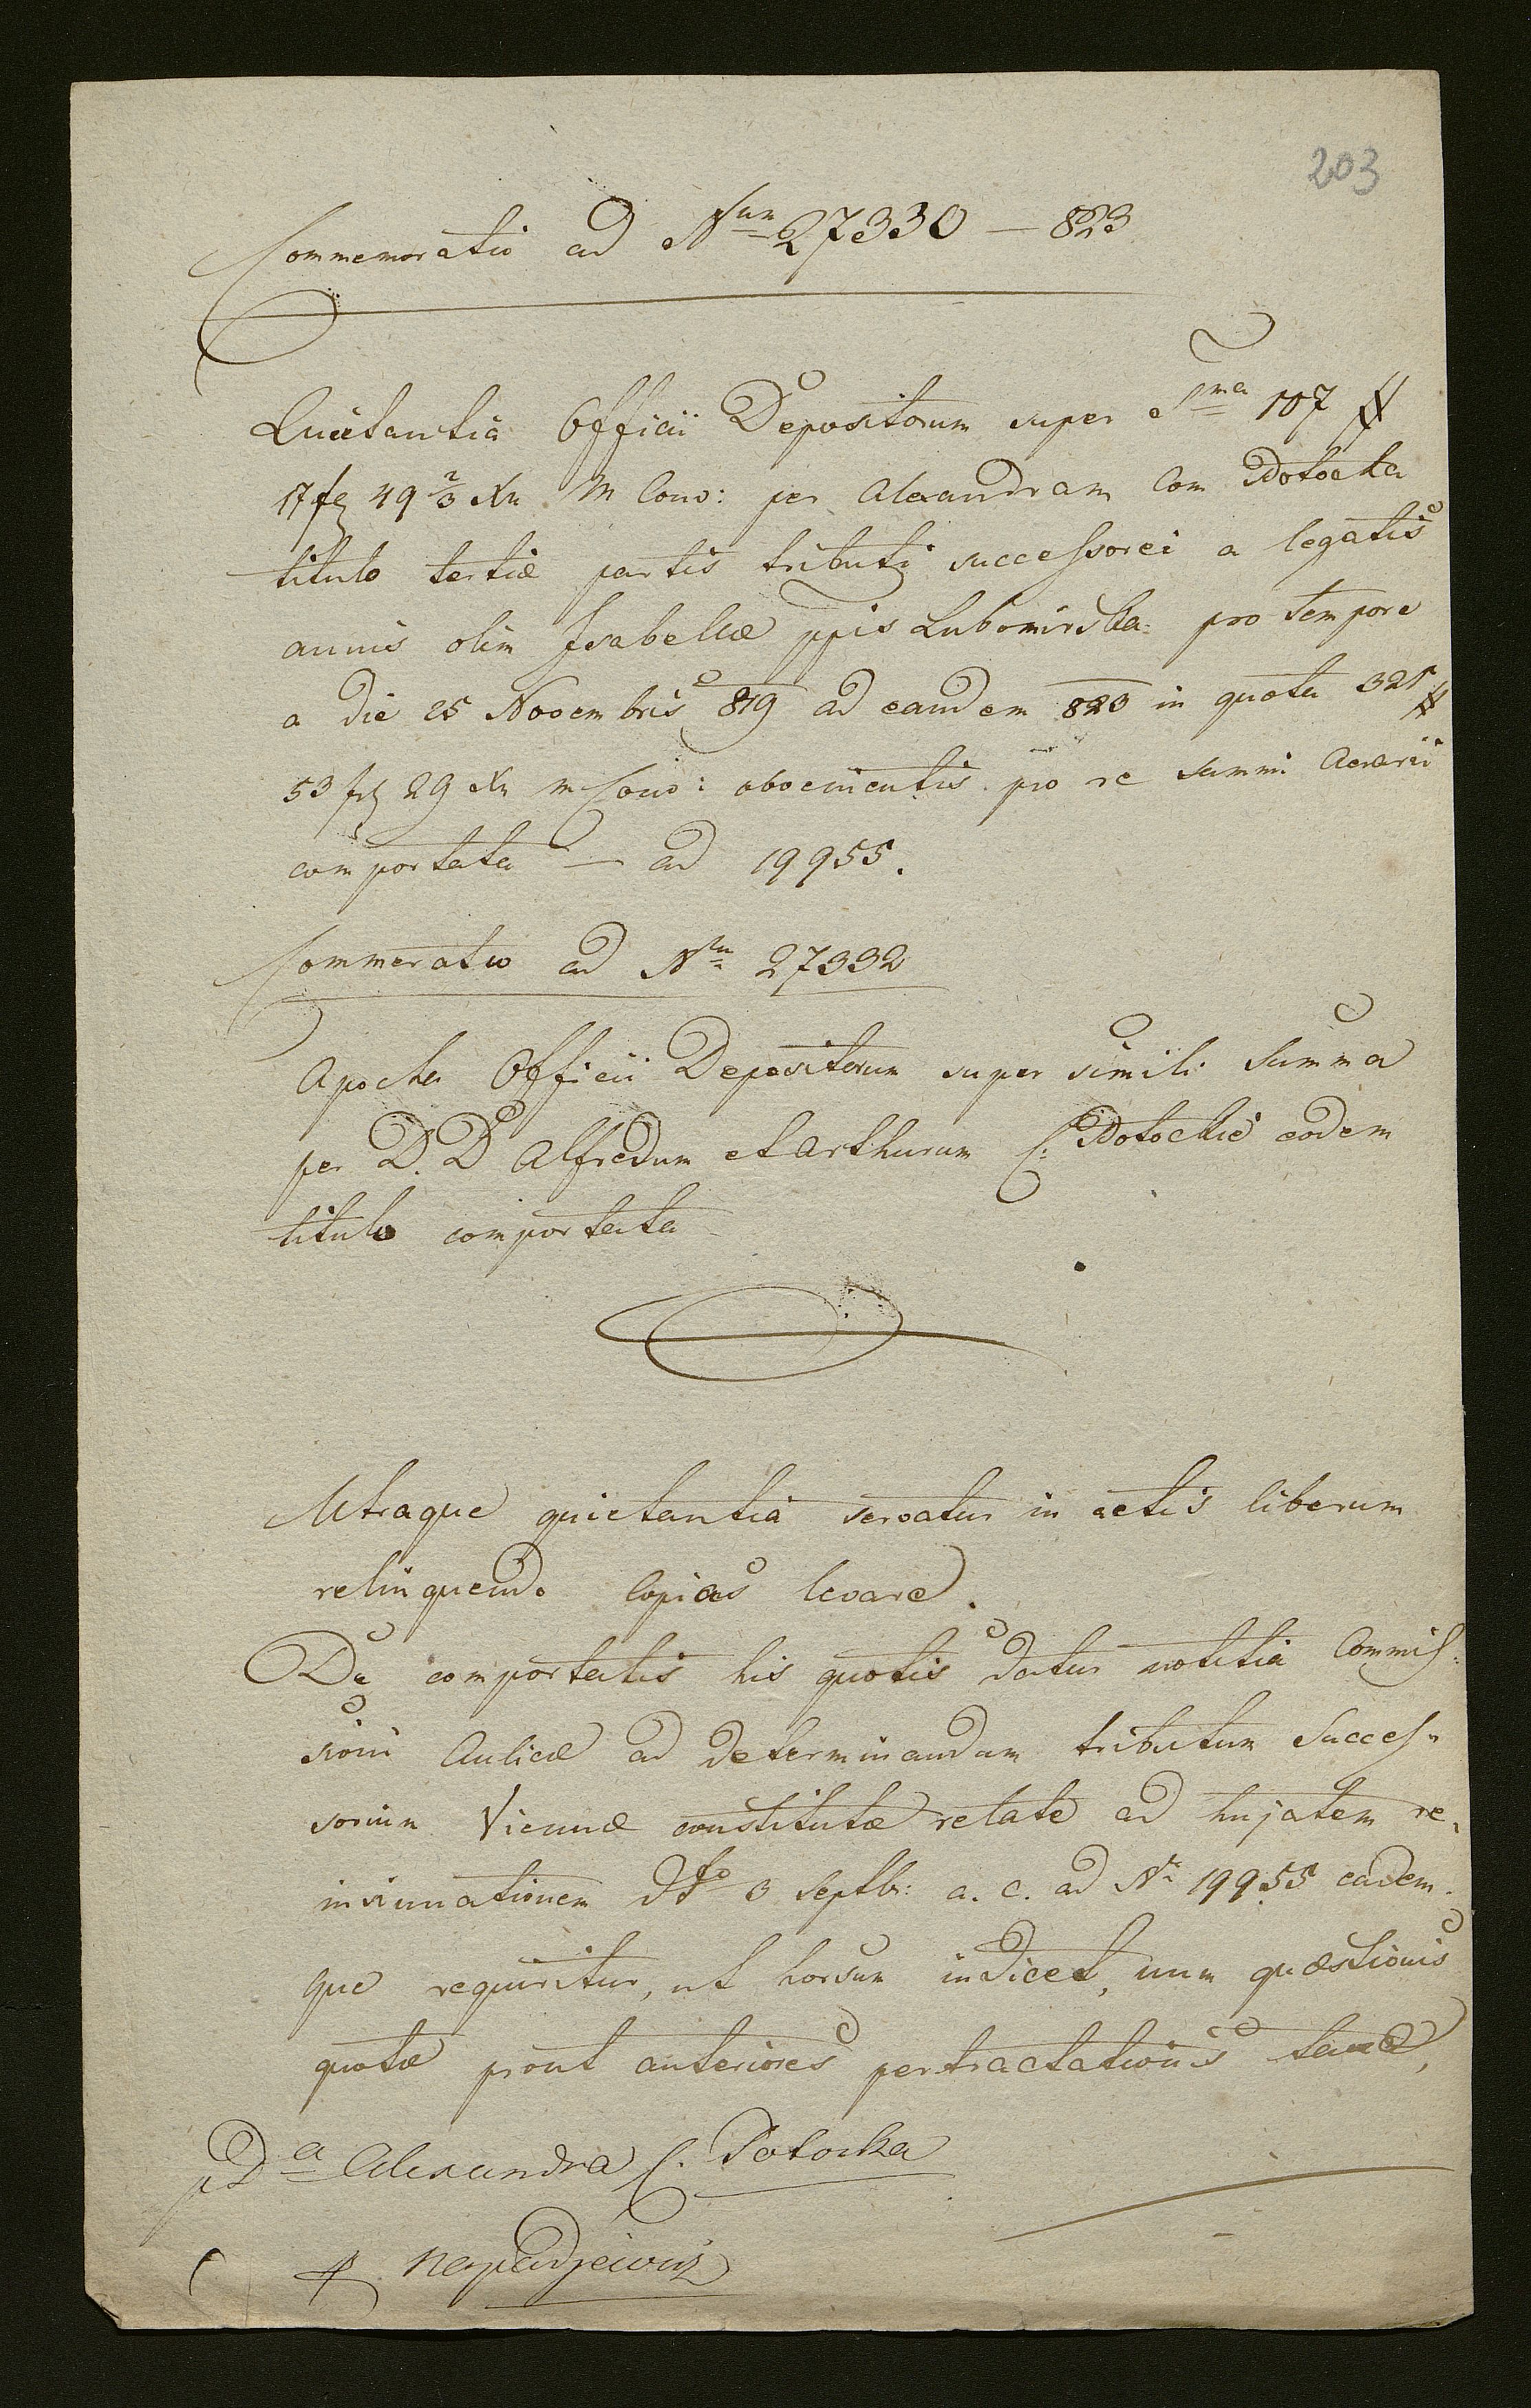 203
Commemoratio ad Nrum 27330 – 823
Quietantia Officii Depositorum super Sma 107 #
17 fl 49 2/3 Xr M Conv: per Alexandram Com Potocka
titulo tertiæ partis tributi successorei a legatis
annuis olim Isabellæ ppis Lubomirska pro tempore
a die 25 Novembris 819 ad eandem 823 in quota 321 #
53 fl 29 Xr m Conv: obvenientis pro re summi Aerarii
comportata — ad 19955.
Commeratio ad Nrm 27332
Apocha Officii Depositorum super simili Summa
per D. D Alfredum et Arthurum C: Potockie eodem
titulo comportata
Utraque quietantia servatur in actis liberum
relinquendo copias levare.
De comportatis his quotis datur notitia Commis:
sioni Aulicæ ad determinandum tributum Succes:
sorium Viennæ constitutæ relate ad hujatem re:
insinuationem dto 3 Septbr: a. c. ad Nr 19955 eadem:
que requiritur, ut horsum indicet, num quæstionis
quotæ prout anteriores pertractationis
pDa Alexandra C. Potocka